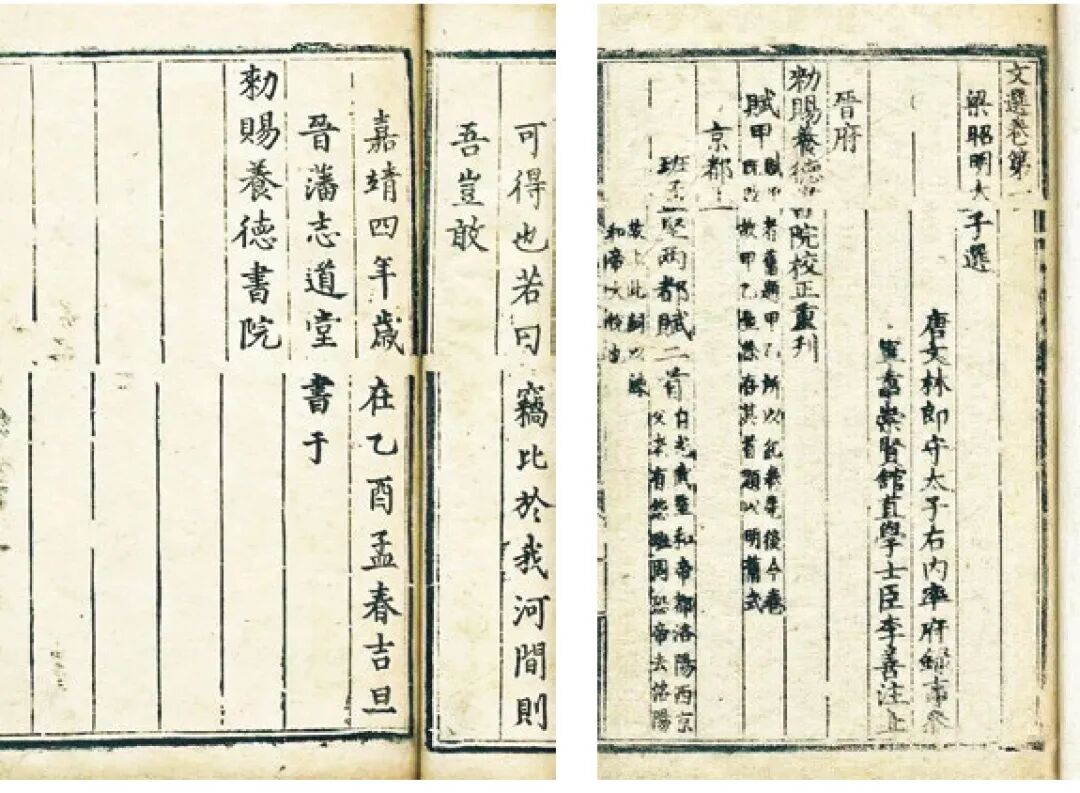 可得也若曰竊比於我河間則
吾豈敢
嘉靖四年歲在乙酉孟春吉旦
晉藩志道堂書于
勅賜養德書院
文選卷第一
梁昭明太子選
唐文林郎守太子右內率府錄事參
軍事崇賢館直學士臣李善注上
晉府
勅賜養德書院校正重刊
賦甲 賦甲者舊題甲乙所以紀卷先後今卷
既改故甲乙並除存其首題以明舊式
京都上
班孟堅兩都賦二首 自光武至和帝都洛陽西京
父老有怨班固恐帝去洛陽
故上此詞以諫
和帝大悅也